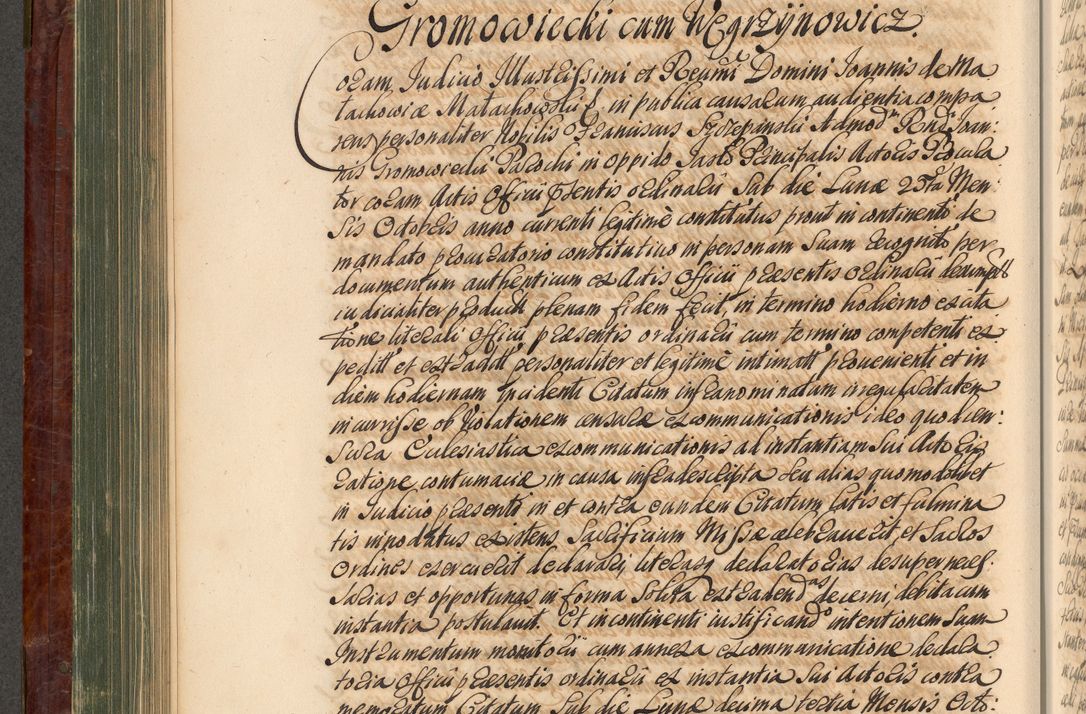 Gromowiecki cum Węgrzÿnowicz.
Coram Judicio Illustrissimi et Reverendissimi Domini Joannis de Ma
łachowice Małachowski E. in publica causarum audientia compa
rens personaliter Nobilis Franciscus Szczepanski Admod. Rnd. Joan:
nis Gromowiecki Parochi in oppido Jasło Principalis Actoris Procura
tor coram Actis Officii psentis ordinarii Sab die Lunæ 25ta Men:
Sis Octobris anno currenti legitimè constitutus prout in continenti de
mandato procuratorio constitutivo in personam Suam recognito per
documentum authenticum ex Actis Officii præsentis ordinarii
judicialiter plenam fidem fecit, in termino hodierno ex cita
tione literali Officii præsentis ordinarii cum termino competenti ex
peditt et extradtt personaliter et legitimè intimatt provenienti et in
diem hodiernam incidenti Citatum infranominatum irregularitatem
incurrisse ob violationem censuræ excommunicationis ideo quod cen:
Sura Ecclesiastica excommunicationis ad instantiam Sui Actoris
ratione contumaciæ in causa infradescripta Seu alias quomodolibet
in Judicio præsenti in et contra eundem Citatum latis et fulmina
tis innodatus existens Sacrificium Missæ celebraverit, et Sacros
Ordines exercuerit declarari, literasq declaratorias desuper neces
Sarias et opportunas in forma Solita extradendas decerni, debita cum
instantia postulavit. Et in continenti justificando intentionem Suam
Instrumentum monitorii cum annexa excommunicatione declara
toria Officii præsentis ordinarii ex instantia Sui Actoris contra
memoratum Citatum Sub die Lunæ decima tertia Mensis Octo: